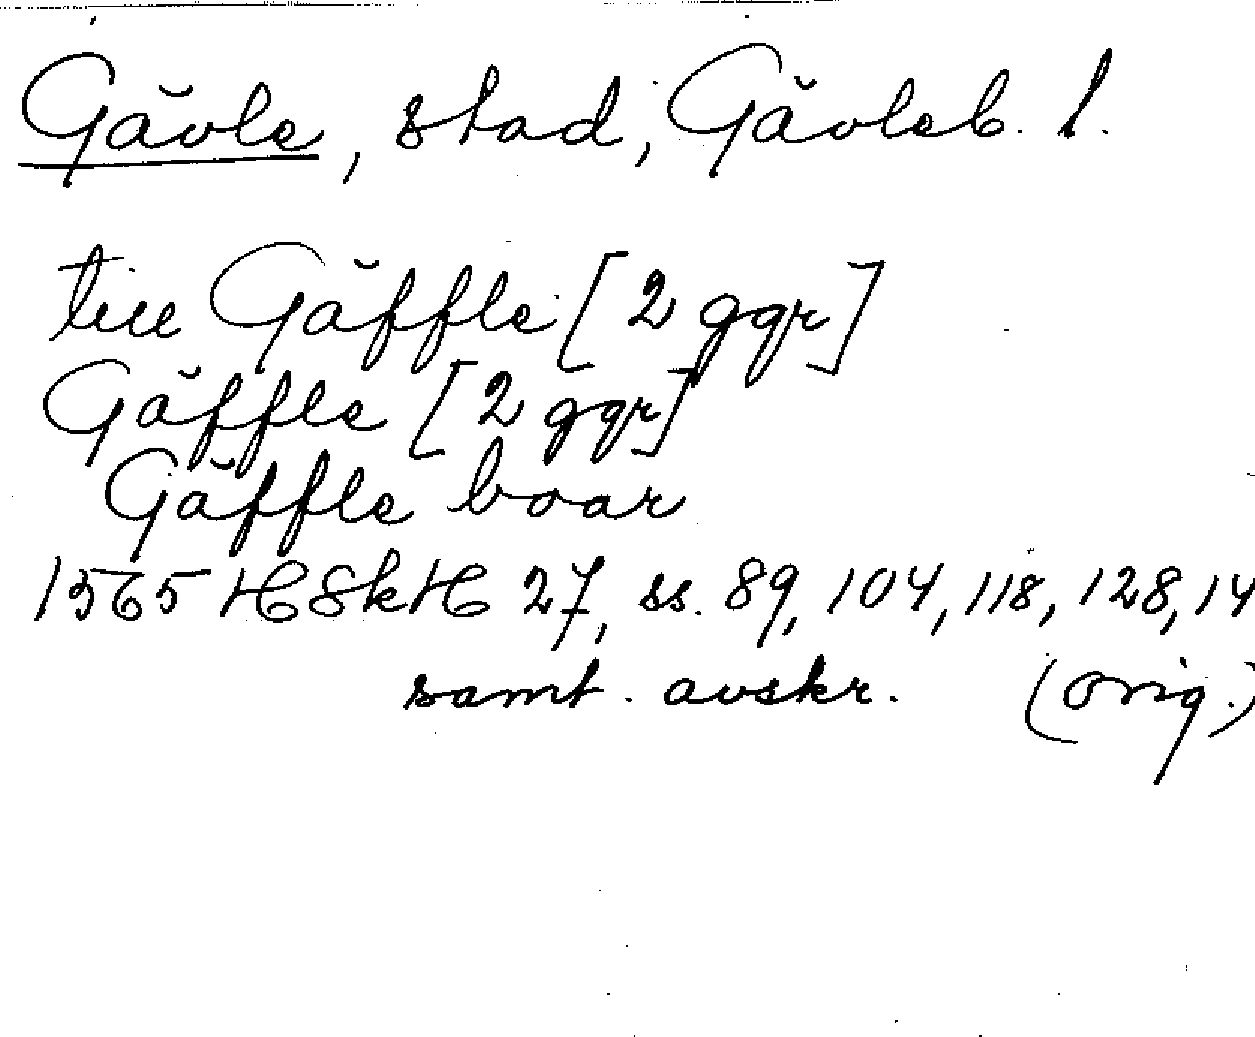 Gävle, stad, Gävleb. l.
till Gäffle [2 ggr]
Gäffle [2 ggr]
Gäffle boar
1565 HSkH 27, ss. 89, 104, 118, 128, 14
samt. avskr. (orig.)